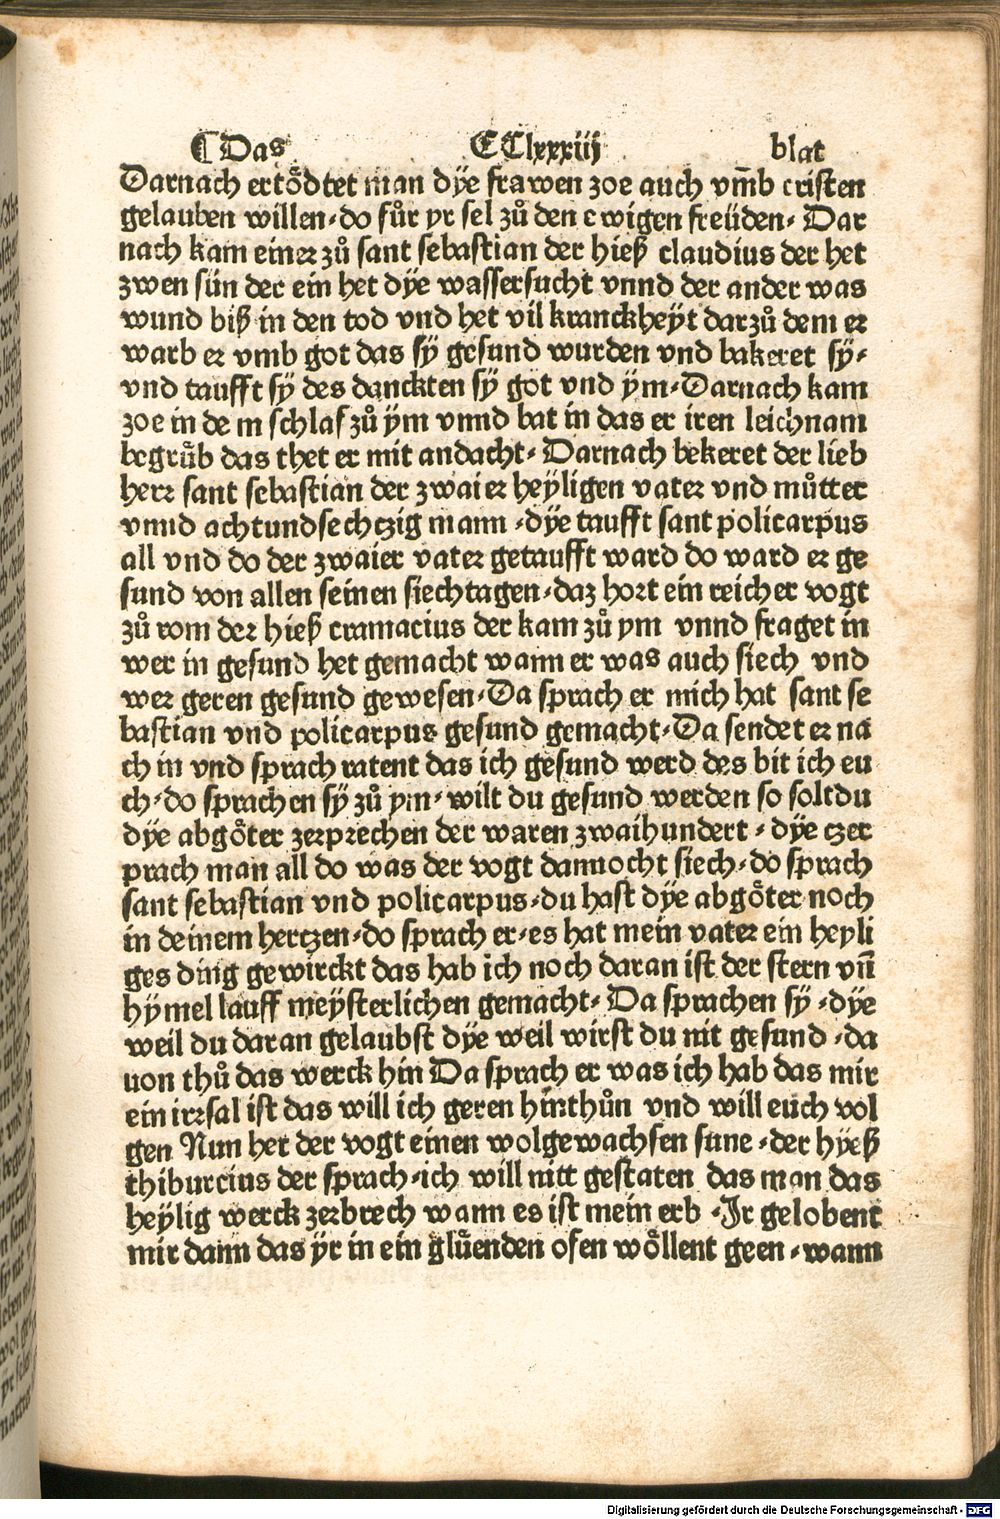 ¶ Das CClxxxiij blat
Darnach ertoͤdtet man dÿe frawen zoe auch vm̄b cristen
gelauben willen⸗do fuͤr yr sel zuͦ den ewigen freüden⸗ Dar
nach kam einer zuͦ sant sebastian der hieß claudius der het
zwen sün der ein het dÿe wassersucht vnnd der ander was
wund biß in den tod vnd het vil kranckheÿt darzuͦ dem er
warb er vmb got das sÿ gesund wurden vnd bakeret sÿ⸗
vnd taufft sÿ des danckten sÿ got vnd ÿm⸗Darnach kam
zoe in dem schlaf zuͦ ÿm vnnd bat in das er iren leichnam
begruͤb das thet er mit andacht⸗ Darnach bekeret der lieb
herr sant sebastian der zwaier heÿligen vater vnd muͦtter
vnnd achtundsechczig mann ⸗dÿe taufft sant policarpus
all vnd do der zwaier vater getaufft ward do ward er ge
sund von allen seinen siechtagen⸗daz hort ein reicher vogt
zuͦ rom der hieß cramacius der kam zuͦ ym vnnd fraget in
wer in gesund het gemacht wann er was auch siech vnd
wer geren gesund gewesen⸗Da sprach er mich hat sant se
bastian vnd policarpus gesund gemacht⸗Da sendet er na
ch in vnd sprach ratent das ich gesund werd des bit ich eu
ch⸗do sprachen sÿ zuͦ ym⸗ wilt du gesund werden so soltdu
dÿe abgoͤter zerprechen der waren zwaihundert ⸗ dÿe czer
prach man all do was der vogt dannocht siech⸗do sprach
sant sebastian vnd policarpus⸗du hast dÿe abgoͤter noch
in deinem hertzen⸗do sprach er⸗es hat mein vater ein heyli
ges ding gewirckt das hab ich noch daran ist der stern vn̄
hÿmel lauff meÿsterlichen gemacht⸗ Da sprachen sÿ ⸗dÿe
weil du daran gelaubst dÿe weil wirst du nit gesund ⸗da
uon thuͦ das werck hin Da sprach er was ich hab das mir
ein irrsal ist das will ich geren hinthuͦn vnd will euch vol
gen Nun het der vogt einen wolgewachsen sune ⸗der hÿeß
thiburcius der sprach⸗ich will nitt gestaten das man das
heÿlig werck zerbrech wann es ist mein erb ⸗Jr gelobent
mir dann das ÿr in ein gluͤenden ofen woͤllent geen ⸗wann
Digitalisierung gefördert durch die Deutsche Forschungsgemeinschaft - DFG